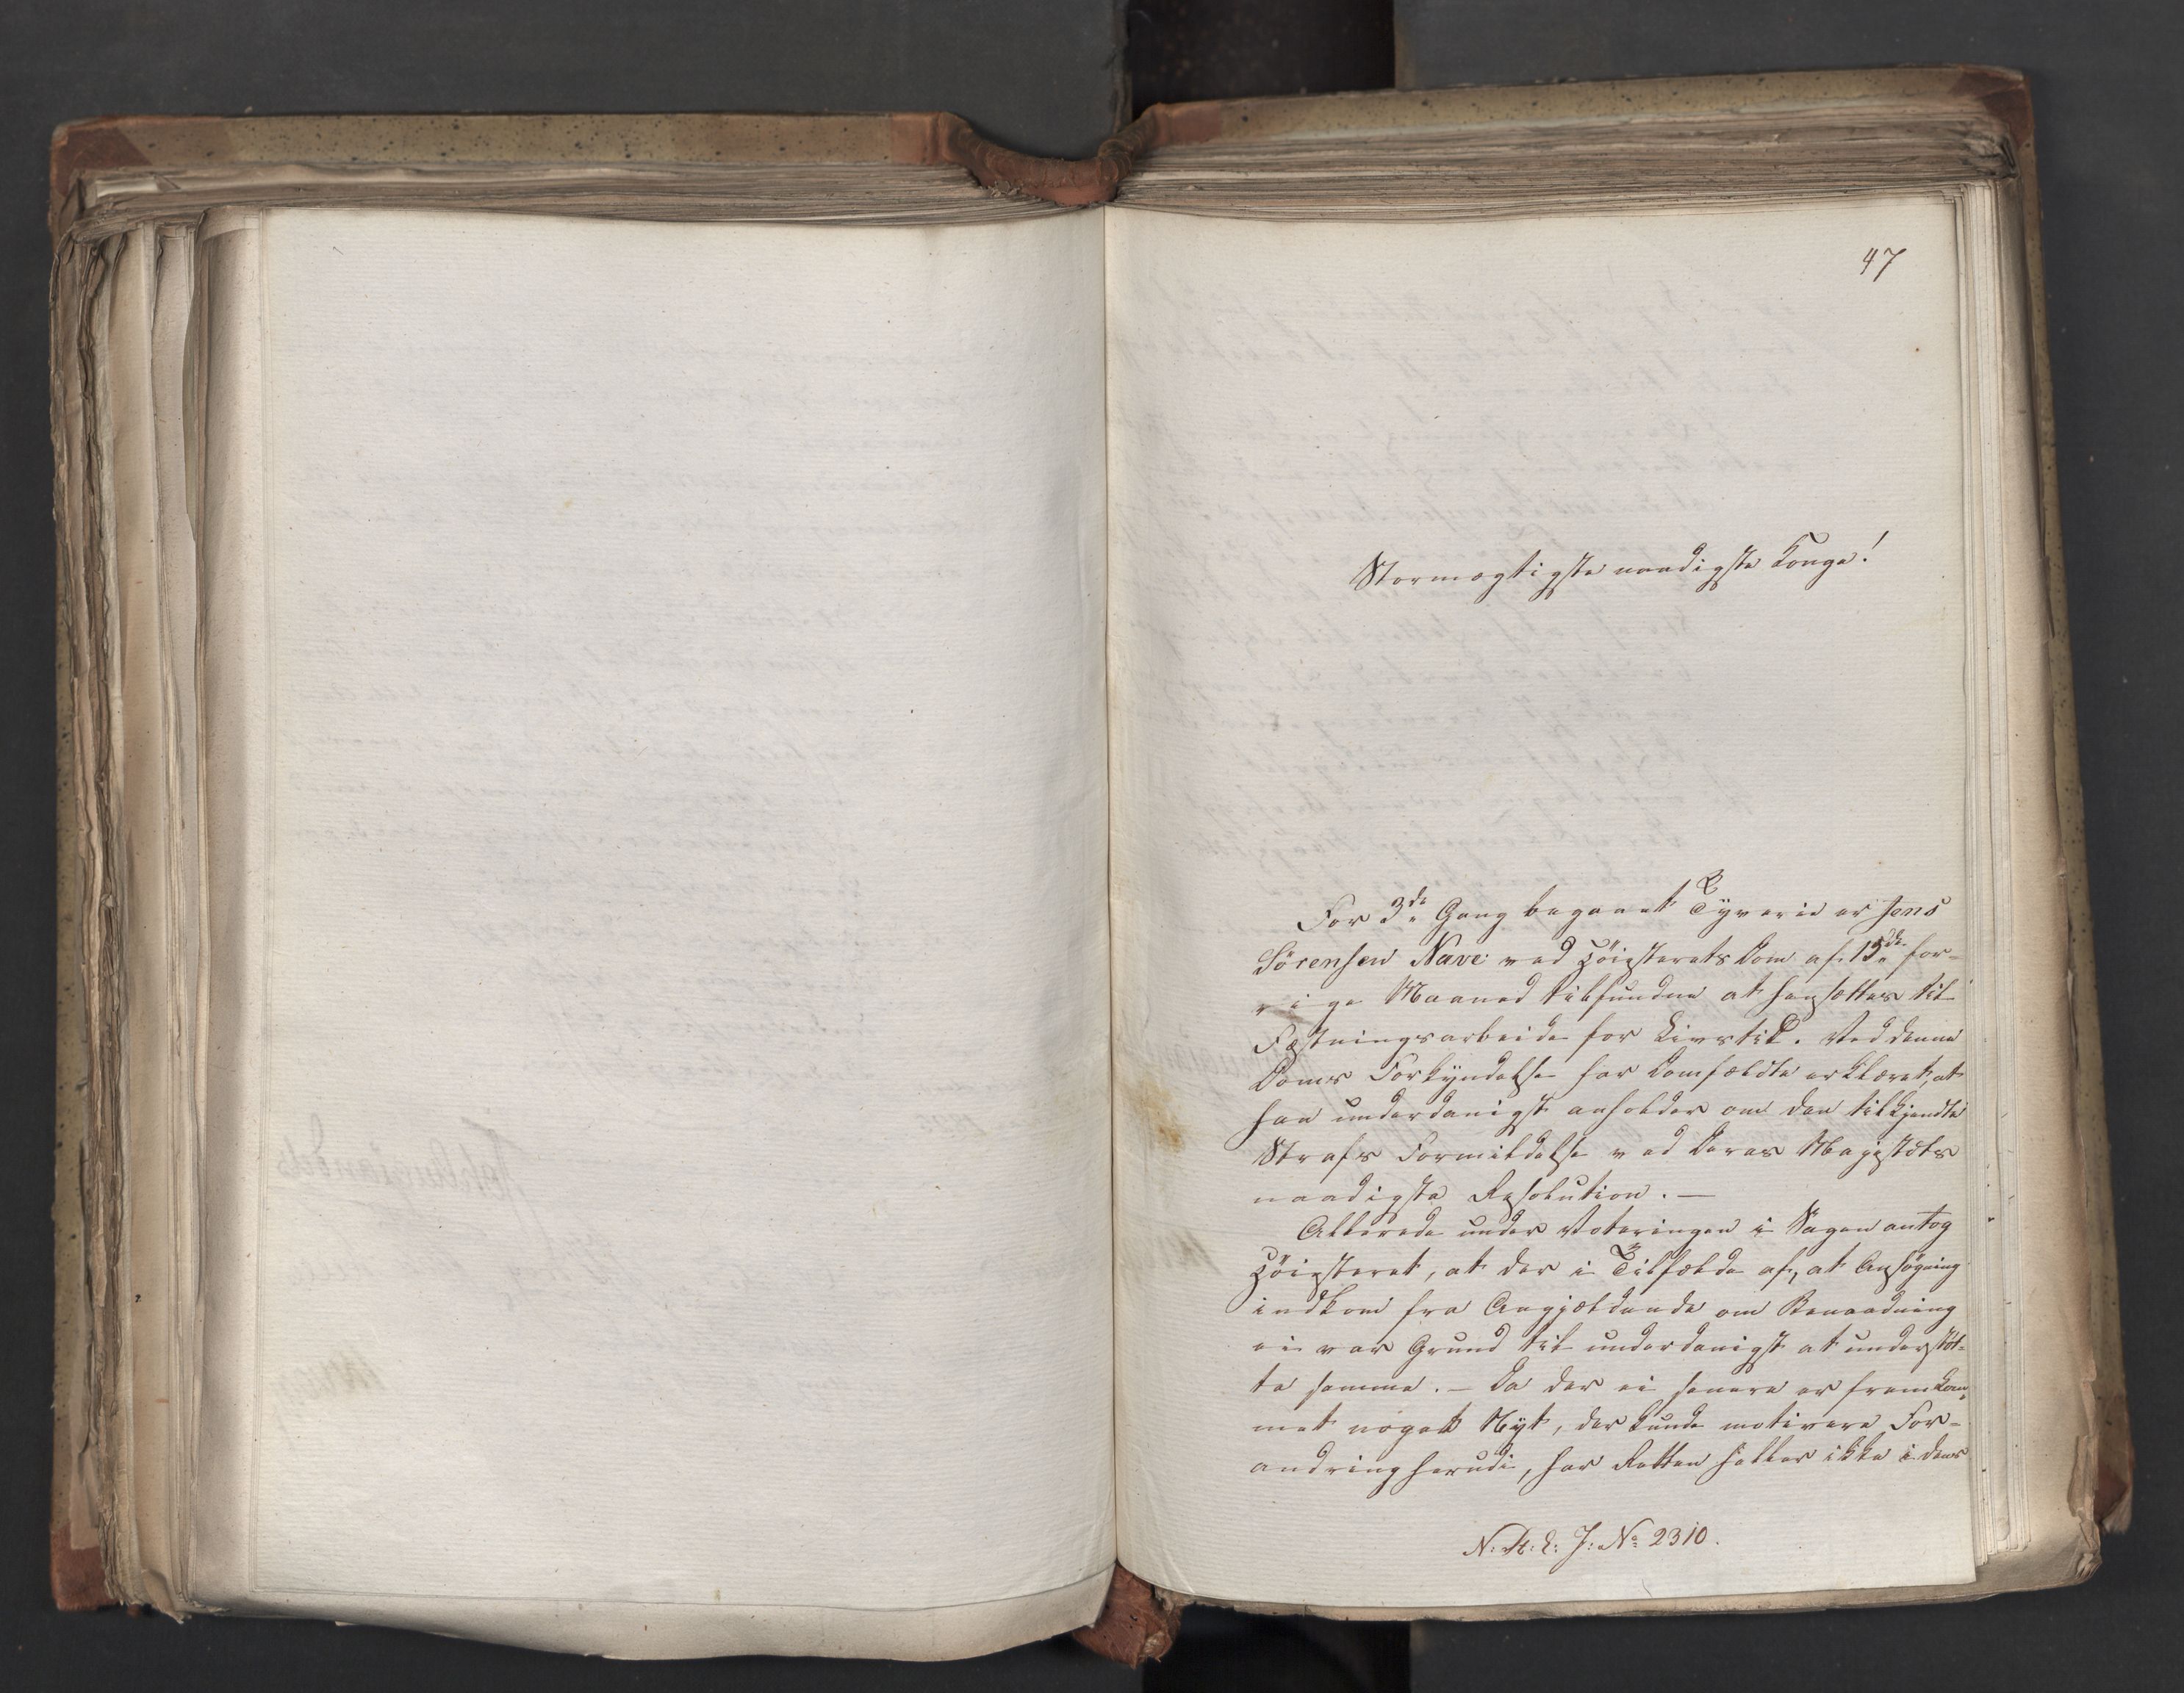 47
Stormægtigste naadigste Konge!
For 3de Gang begaaet Tyverie er Jens
Sörensen Nave ved Höiesterets Dom af 13de for-
rige Maaned tilfunden at hensættes til
Fæstningsarbeide for Livstid. Ved denne
Doms Forkyndelse har Domfældte erklæret, at
han underdanigst anholder om den tilkjendte
Strafs Formildelse ved Deres Majestæts
naadigste Resolution. —
Allerede under Voteringen i Sagen antog
Höiesteret, at der i Tilfælde af, at Ansøgning
indkom fra Angjældende om Benaadning
ei var Grund til underdanigst at understöt-
te samme. — Da der ei senere er fremkom-
met noget Nyt, der kunde motivere For-
andring herudi, har Retten heller ikke i dens
N: A: E: J: No 2310.